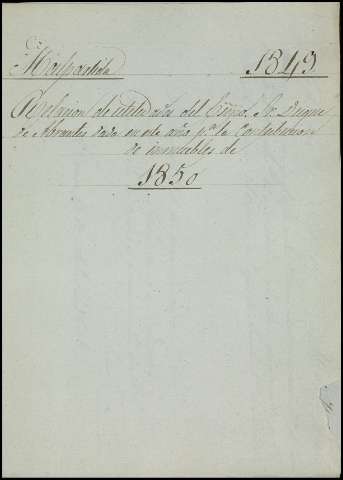 Malpartida 1849
Relacion de utilidades del Escmo. Sr. Duque
de Abrantes dada en este año pa. la Contribucion
de inmuebles de
1850